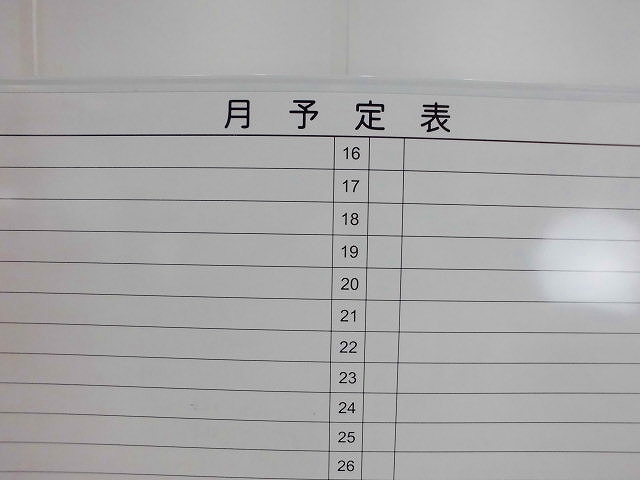 月予定表
16
17
18
19
20
21
22
23
24
25
26